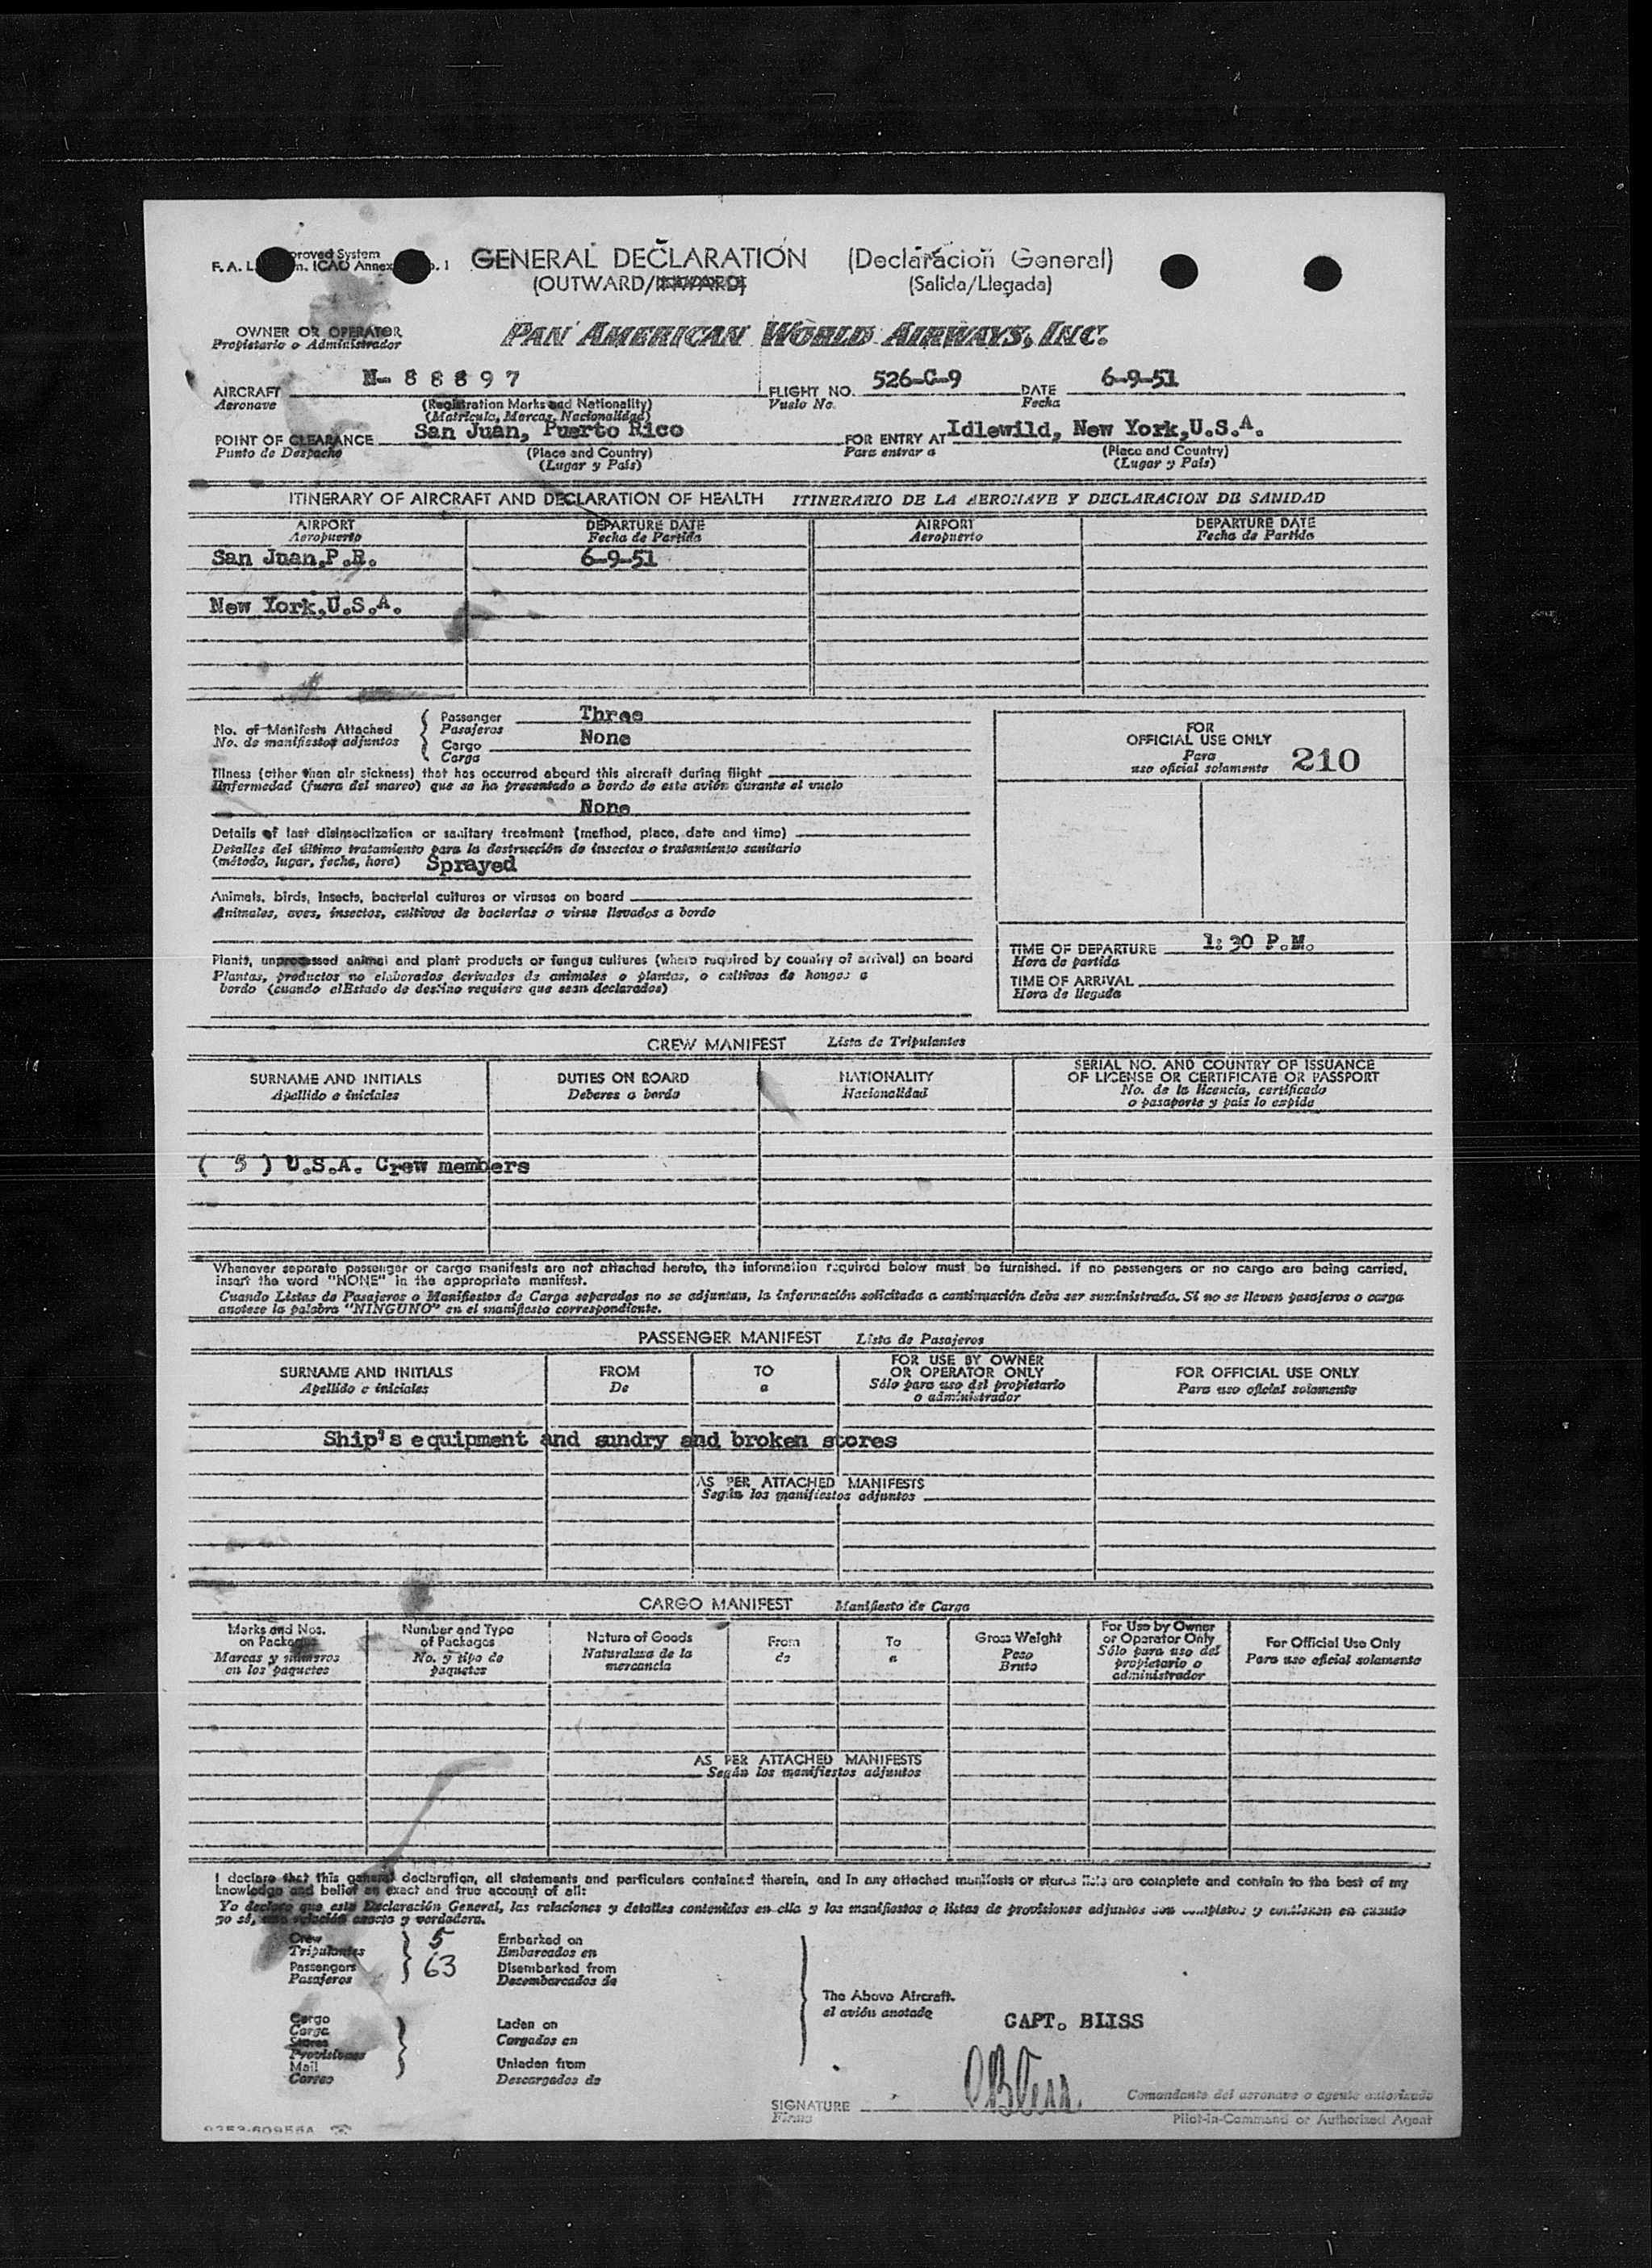 F. A. L. proved System
n. ICAO Annex . 1
GENERAL DECLARATION (Declaración General)
(OUTWARD/INWARD) (Salida/Llegada)
OWNER OR OPERATOR
Propietario o Administrador
PAN AMERICAN WORLD AIRWAYS, INC.
AIRCRAFT N- 88897 FLIGHT NO. 526-C-9 DATE 6-9-51
Aeronave (Registration Marks and Nationality) Vuelo No. Fecha
(Matrícula, Marcas, Nacionalidad)
POINT OF CLEARANCE San Juan, Puerto Rico FOR ENTRY AT Idlewild, New York,U.S.A.
Punto de Despacho (Place and Country) Para entrar a (Place and Country)
(Lugar y País) (Lugar y País)
ITINERARY OF AIRCRAFT AND DECLARATION OF HEALTH ITINERARIO DE LA AERONAVE Y DECLARACION DE SANIDAD
AIRPORT DEPARTURE DATE AIRPORT DEPARTURE DATE
Aeropuerto Fecha de Partida Aeropuerto Fecha de Partida
San Juan,P.R. 6-9-51
New York,U.S.A.
No. of Manifests Attached
No. de manifiestos adjuntos
Passenger Three
Pasajeros
Cargo None
Carga
Illness (other than air sickness) that has occurred aboard this aircraft during flight
Enfermedad (fuera del mareo) que se ha presentado a bordo de este avión durante el vuelo
None
Details of last disinsectization or sanitary treatment (method, place, date and time)
Detalles del último tratamiento para la destrucción de insectos o tratamiento sanitario
(método, lugar, fecha, hora) Sprayed
Animals, birds, insects, bacterial cultures or viruses on board
Animales, aves, insectos, cultivos de bacterias o virus llevados a bordo
Plants, unprocessed animal and plant products or fungus cultures (where required by country of arrival) on board
Plantas, productos no elaborados derivados de animales o plantas, o cultivos de hongos a
bordo (cuando elEstado de destino requiere que sean declarados)
FOR
OFFICIAL USE ONLY
Para
uso oficial solamente 210
TIME OF DEPARTURE 1:30 P.M.
Hora de partida
TIME OF ARRIVAL
Hora de llegada
CREW MANIFEST Lista de Tripulantes
SURNAME AND INITIALS DUTIES ON BOARD NATIONALITY SERIAL NO. AND COUNTRY OF ISSUANCE
OF LICENSE OR CERTIFICATE OR PASSPORT
Apellido e iniciales Deberes a bordo Nacionalidad No. de la licencia, certificado
o pasaporte y país lo expide
( 5 ) U.S.A. Crew members
Whenever separate passenger or cargo manifests are not attached hereto, the information required below must be furnished. If no passengers or no cargo are being carried,
insert the word "NONE" in the appropriate manifest.
Cuando Listas de Pasajeros o Manifiestos de Carga separados no se adjuntan, la información solicitada a continuación debe ser suministrada. Si no se lleven pasajeros o carga
anótese la palabra "NINGUNO" en el manifiesto correspondiente.
PASSENGER MANIFEST Lista de Pasajeros
SURNAME AND INITIALS FROM TO FOR USE BY OWNER
OR OPERATOR ONLY FOR OFFICIAL USE ONLY
Apellido e iniciales De a Sólo para uso del propietario
o administrador Para uso oficial solamente
Ship's equipment and sundry and broken stores
AS PER ATTACHED MANIFESTS
Según los manifiestos adjuntos
CARGO MANIFEST Manifiesto de Carga
Marks and Nos.
on Packages
Marcas y números
en los paquetes
Number and Type
of Packages
No. y tipo de
paquetes
Nature of Goods
Naturaleza de la
mercancía
From
de
To
a
Gross Weight
Peso
Bruto
For Use by Owner
or Operator Only
Sólo para uso del
propietario o
administrador
For Official Use Only
Para uso oficial solamente
AS PER ATTACHED MANIFESTS
Según los manifiestos adjuntos
I declare that this general declaration, all statements and particulars contained therein, and in any attached manifests or stores lists are complete and contain to the best of my
knowledge and belief an exact and true account of all:
Yo declaro que esta Declaración General, las relaciones y detalles contenidos en ella y los manifiestos o listas de provisiones adjuntos son completos y contienen en cuanto
yo sé, una relación exacta y verdadera.
Crew 5 Embarked on
Tripulantes Embarcados en
Passengers 63 Disembarked from
Pasajeros Desembarcados de
The Above Aircraft.
el avión anotado
Cargo Laden on
Carga Cargados en
Stores
Provisiones
Mail Unladen from
Correo Descargados de
CAPT. BLISS
SIGNATURE
Firma
Comandante del aeronave o agente autorizado
Pilot-in-Command or Authorized Agent